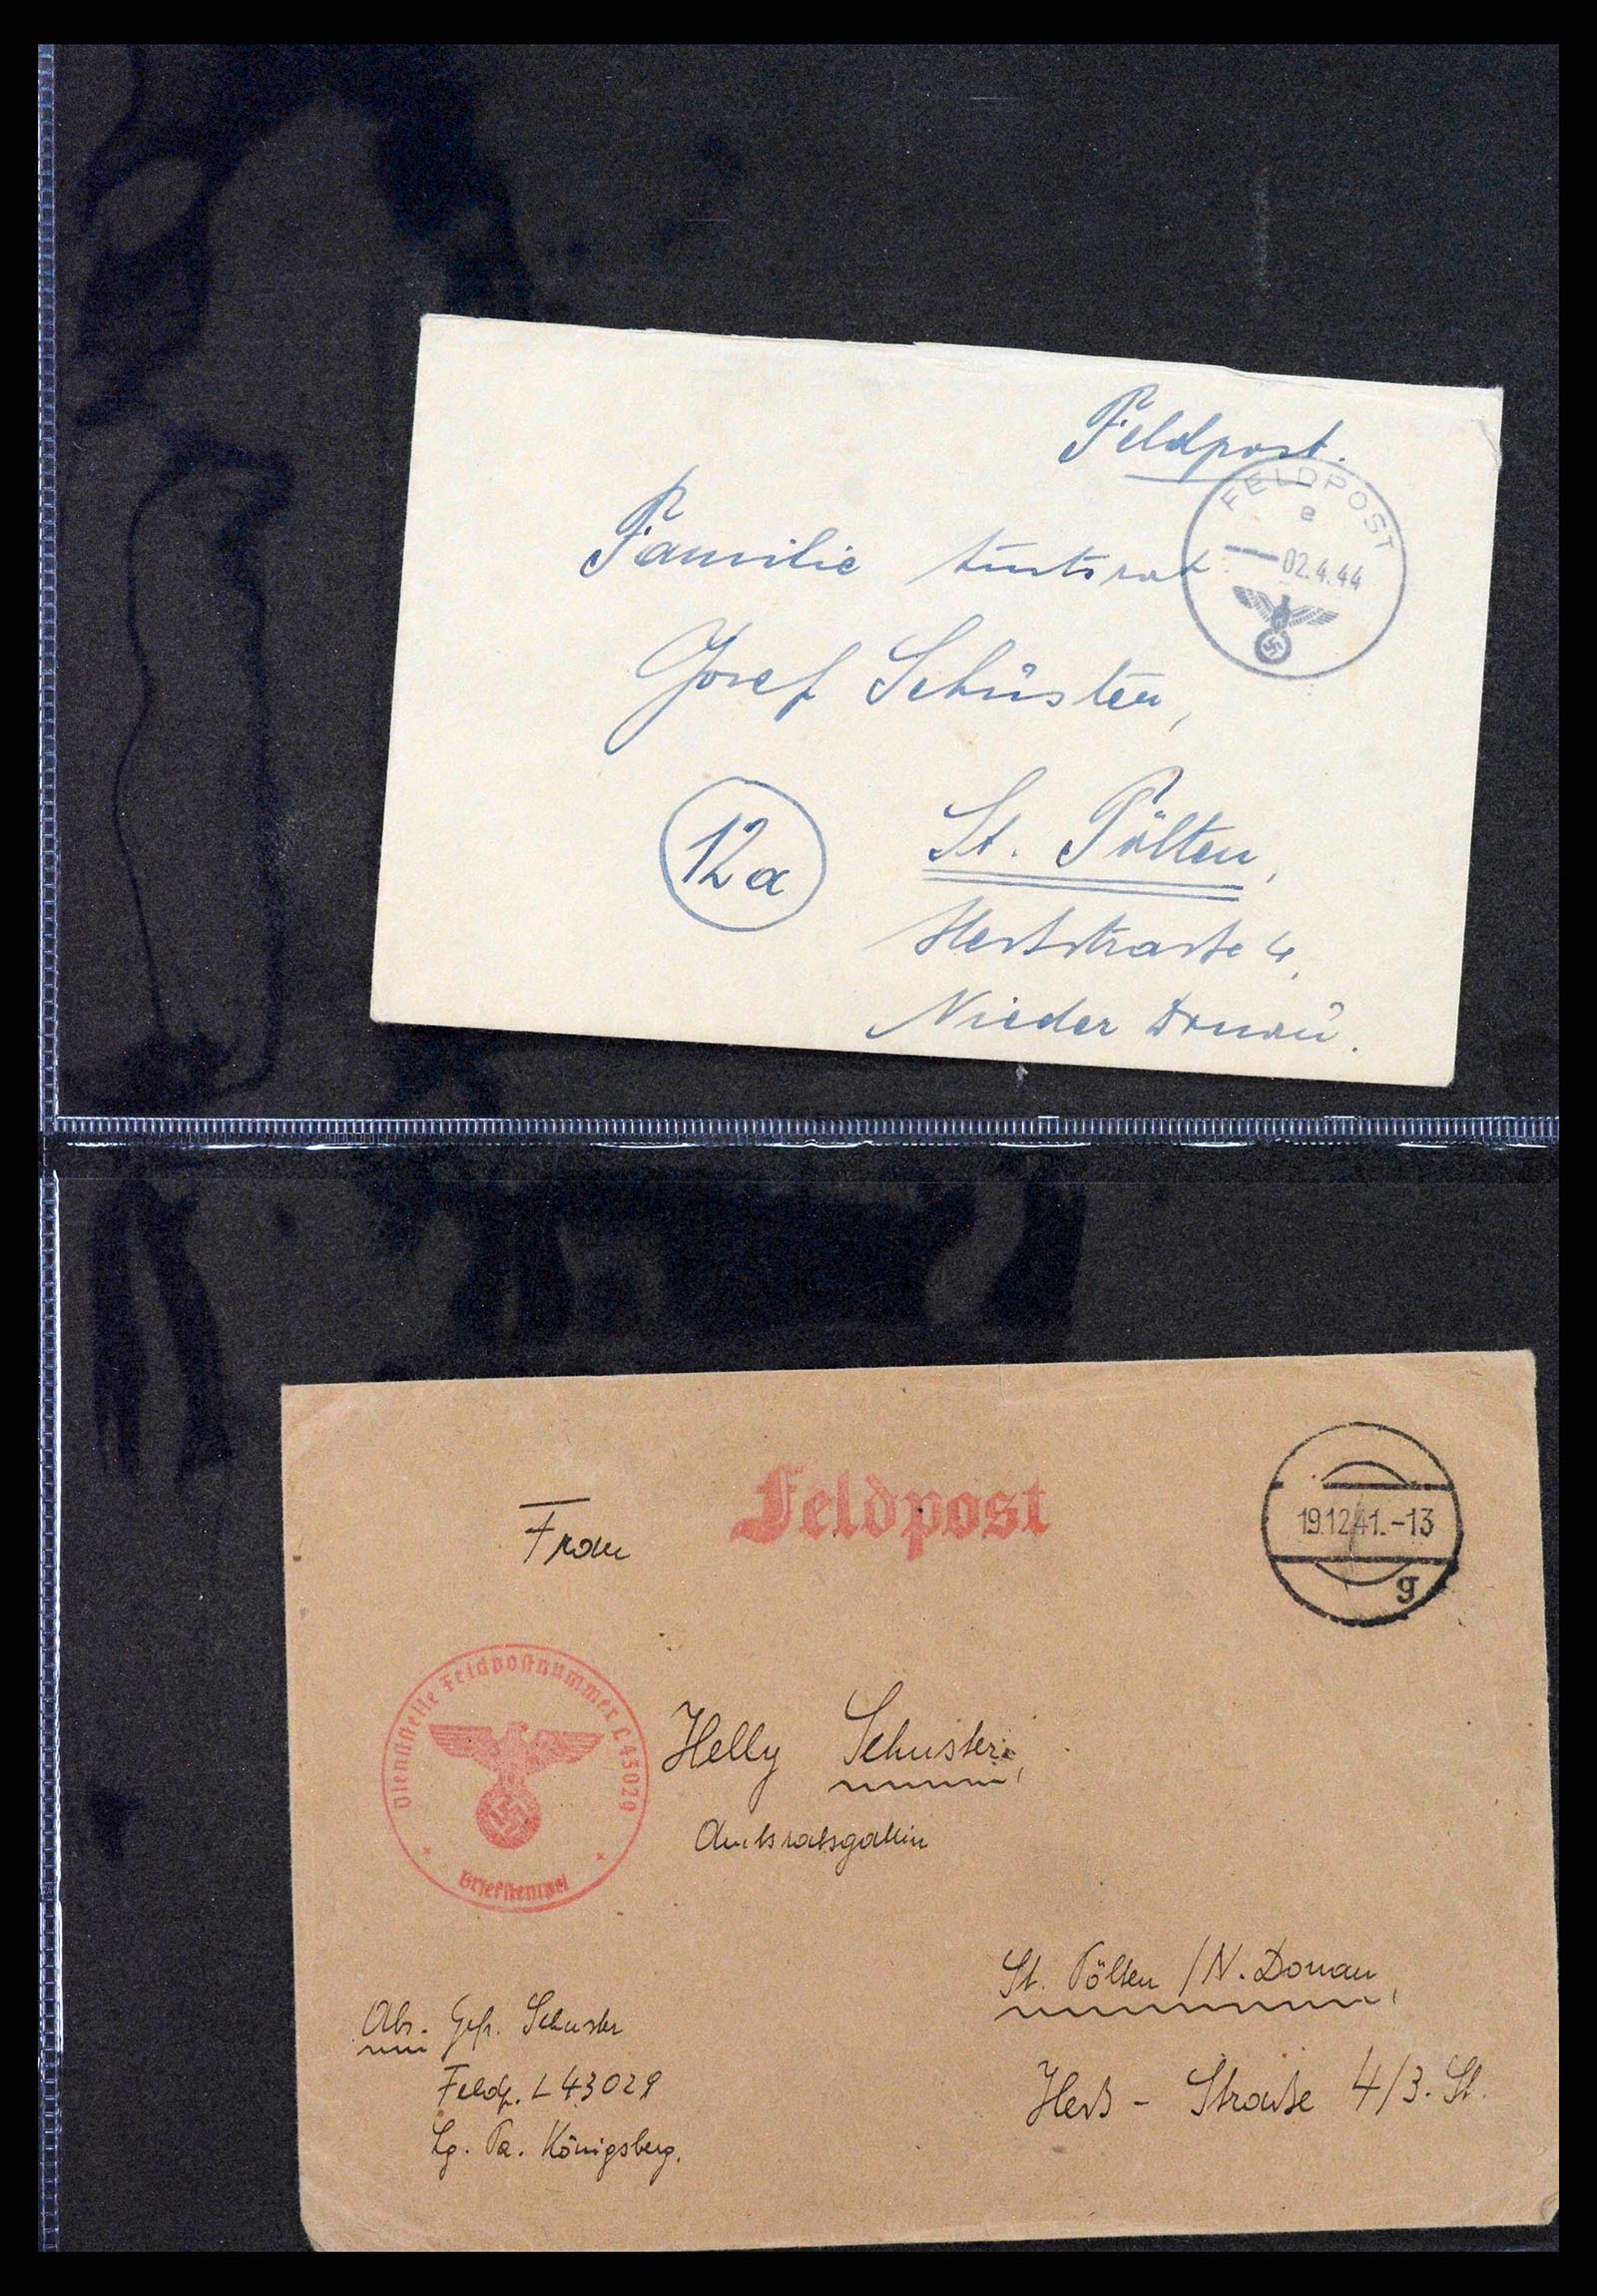 Feldpost.
FELDPOST
e
02.4.44
Familie Amtsrat
Josef Schuster,
12a
St. Pölten,
Heßstraße 4,
Nieder Donau.
Feldpost
19.12.41.-13
g
Frau
Dienststelle Feldpostnummer L 43029
Briefstempel
Helly Schuster,
Amtsratsgattin
St. Pölten / N. Donau,
Heß-Straße 4/3. St.
Abs. Gefr. Schuster
Feldp. L 43029
Lg. Pa. Königsberg.